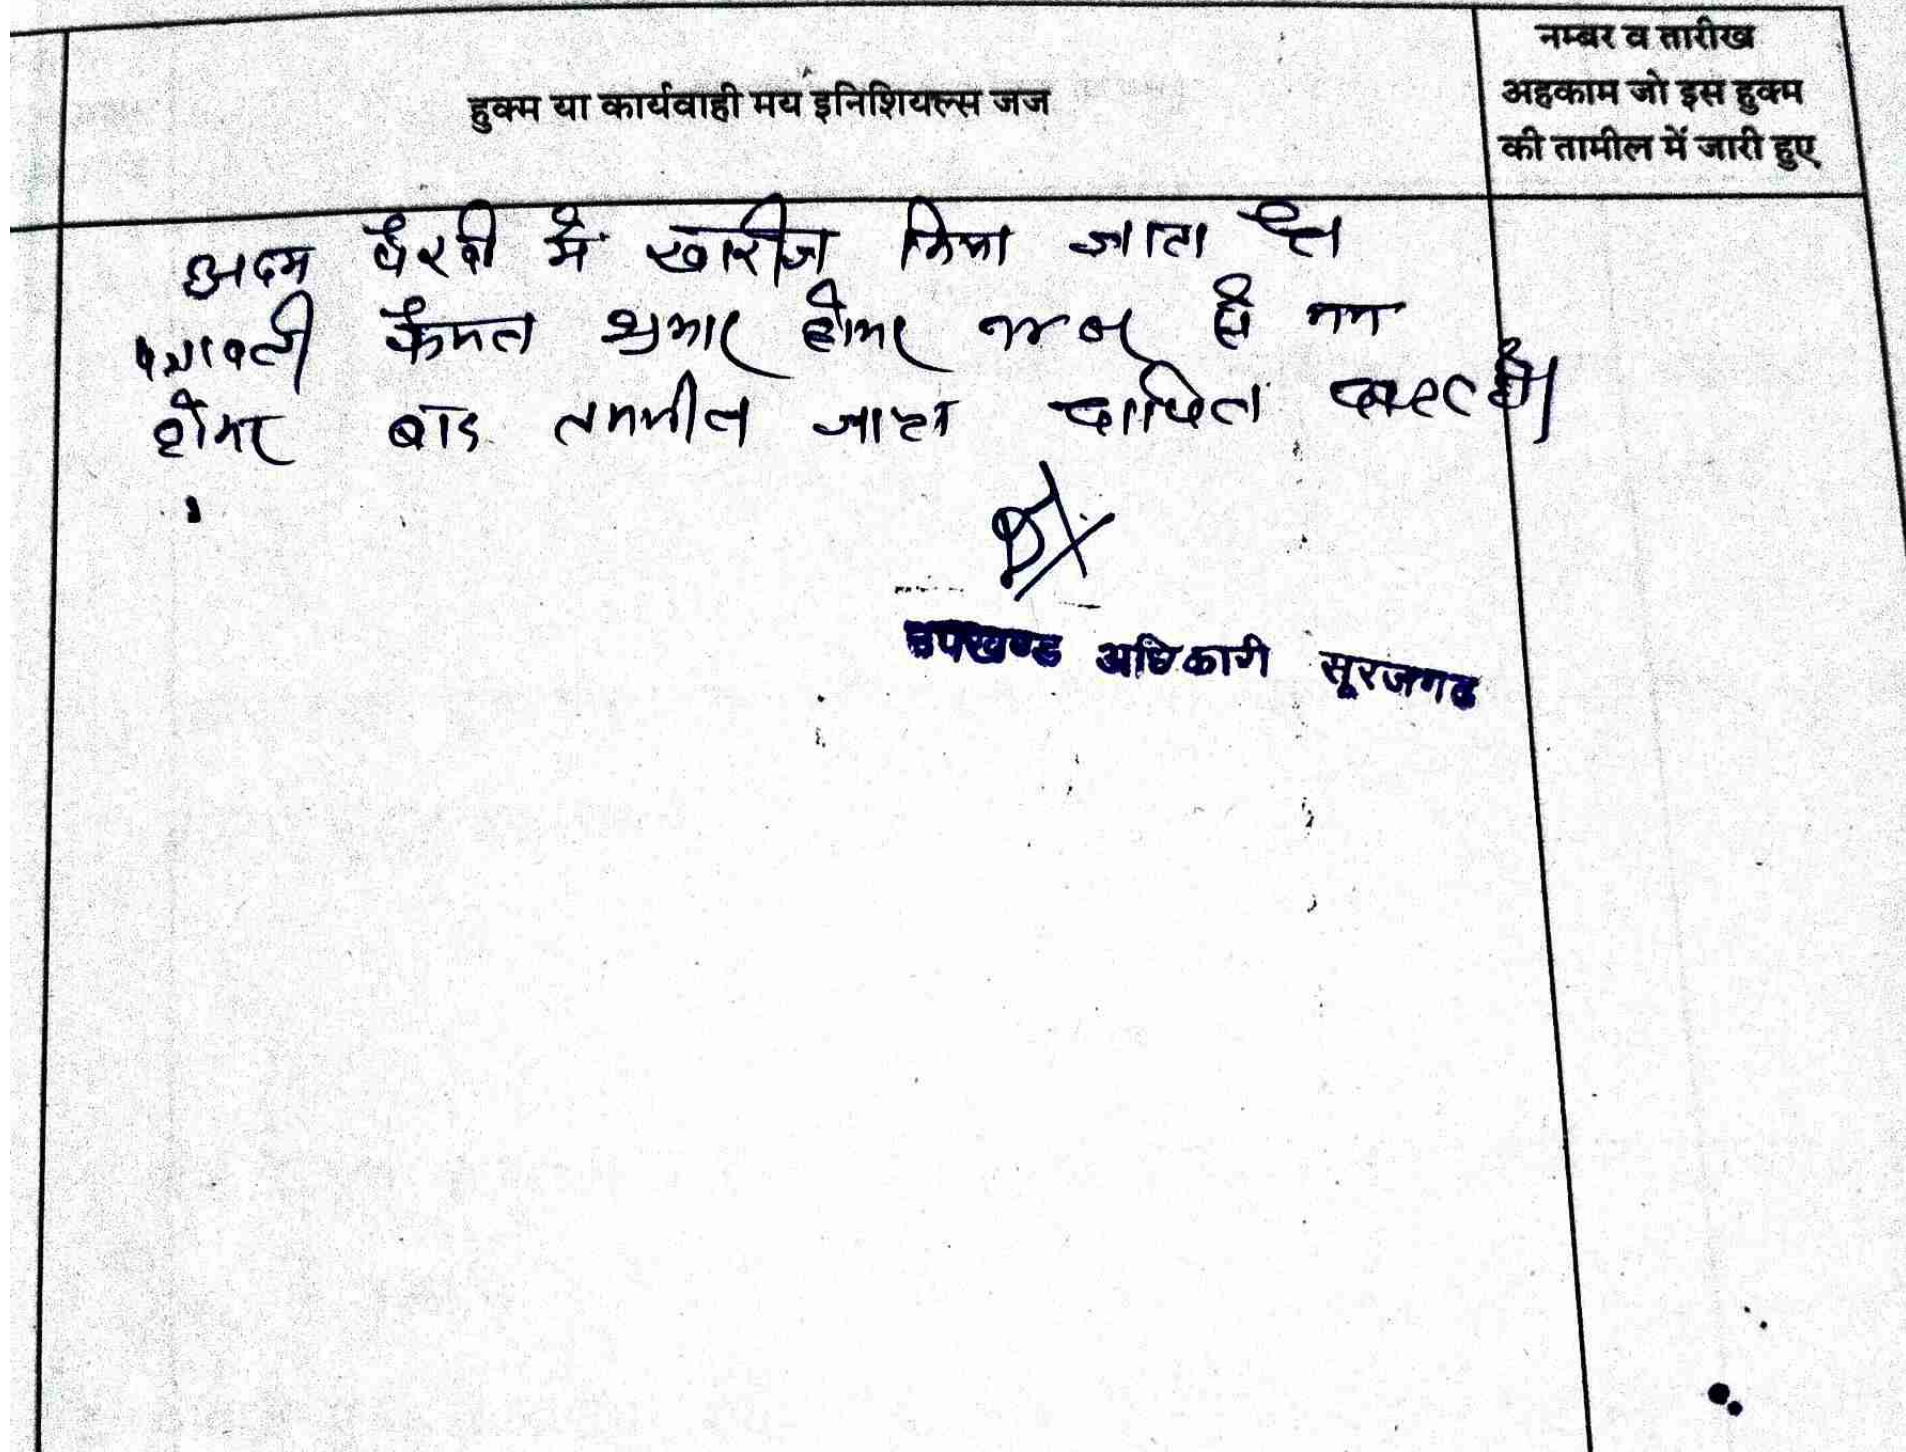 हुक्म या कार्यवाही मय इनिशियल्स जज
नम्बर व तारीख
अहकाम जो इस हुक्म
की तामील में जारी हुए
अदम पैरवी में खारीज किया जाता है।
पत्रावली फैसल शुमार होकर नम्बर से कम
होकर बाद तकमील जाप्ता दाखिल दफ्तर हो।
उपखण्ड अधिकारी सूरजगढ